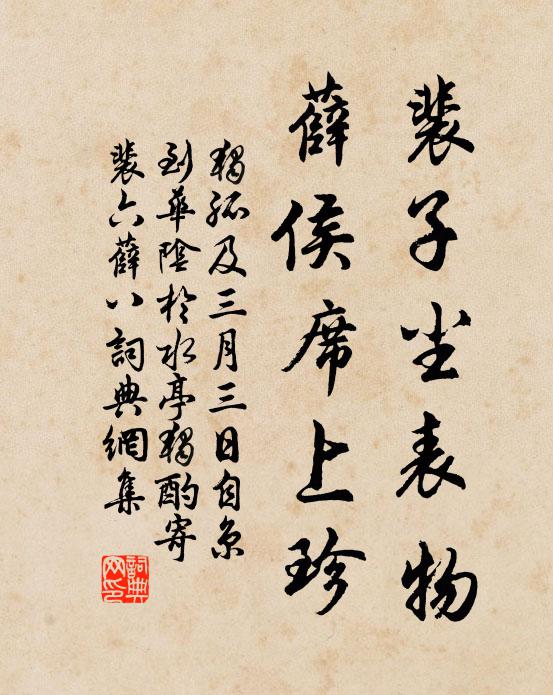 裴子尘表物
薛侯席上珍
獨孤及三月三日自京
到華陰於水亭獨酌寄
裴六薛八詞典網集
詞典网印